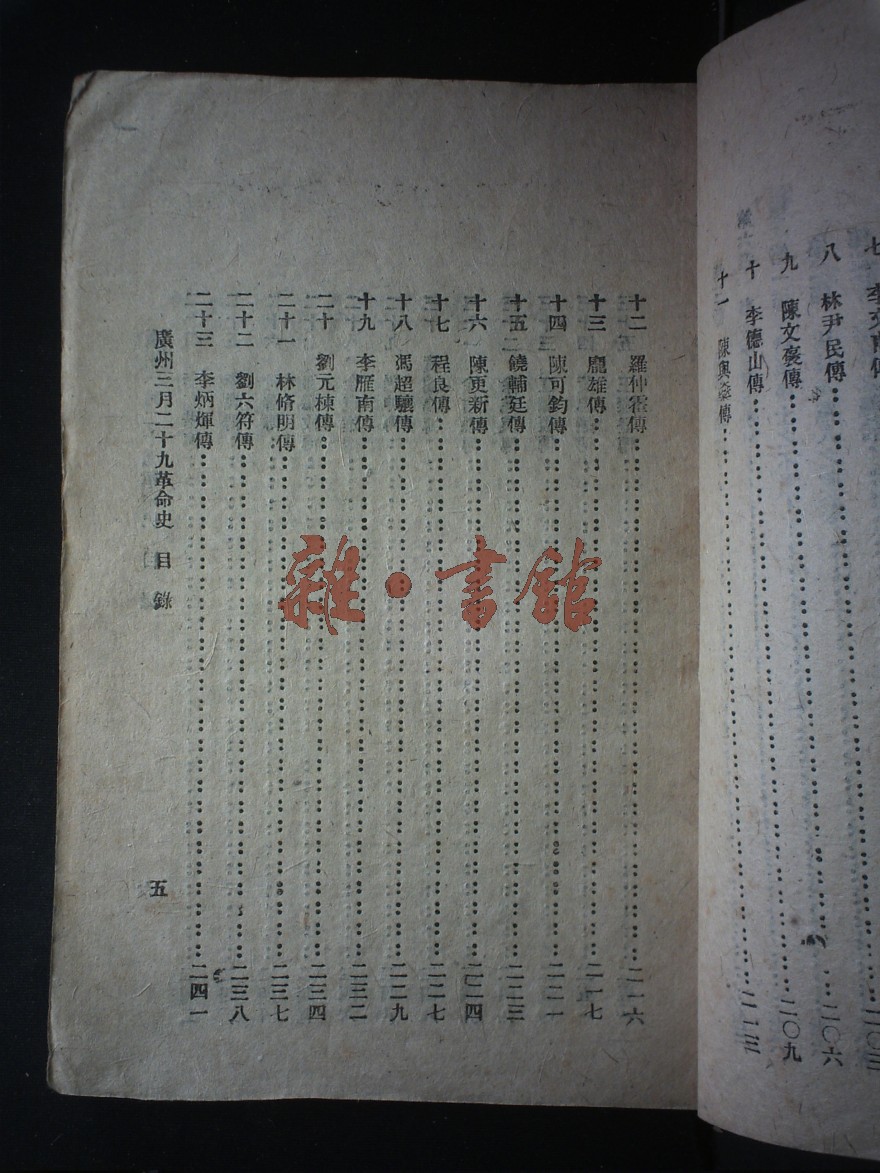 八　林尹民傳……二〇六
九　陳文褒傳……二〇九
十　李德山傳……二一三
十一　陳與燊傳……
十二　羅仲霍傳……二一六
十三　龐雄傳……二一七
十四　陳可鈞傳……二二一
十五　饒輔廷傳……二二三
十六　陳更新傳……二二四
十七　程良傳……二二七
十八　馮超驤傳……二二九
十九　李雁南傳……二三二
二十　劉元棟傳……二三四
二十一　林脩明傳……二三七
二十二　劉六符傳……二三八
二十三　李炳輝傳……二四一
廣州三月二十九革命史　目錄　五
雜·書館